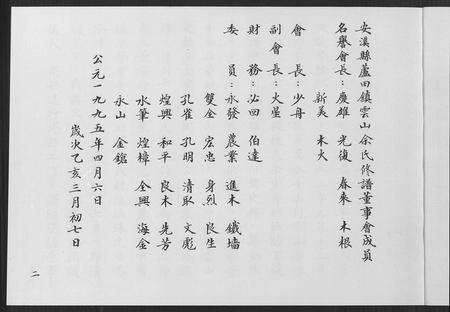 安溪縣蘆田鎮雲山余氏修譜董事會成員
名譽會長：慶雄 光復 春來 木根
新美 木火
會長：少舟
副會長：火星
財務：泌四 伯達
委員：永發 農業 進木 鐵墻
雙金 宏忠 身烈 良生
孔雀 孔明 清取 文彪
煌興 和平 良木 先芳
水筆 煌樟 全興 海金
永山 金鎚
公元一九九五年四月六日
歲次乙亥三月初七日
二